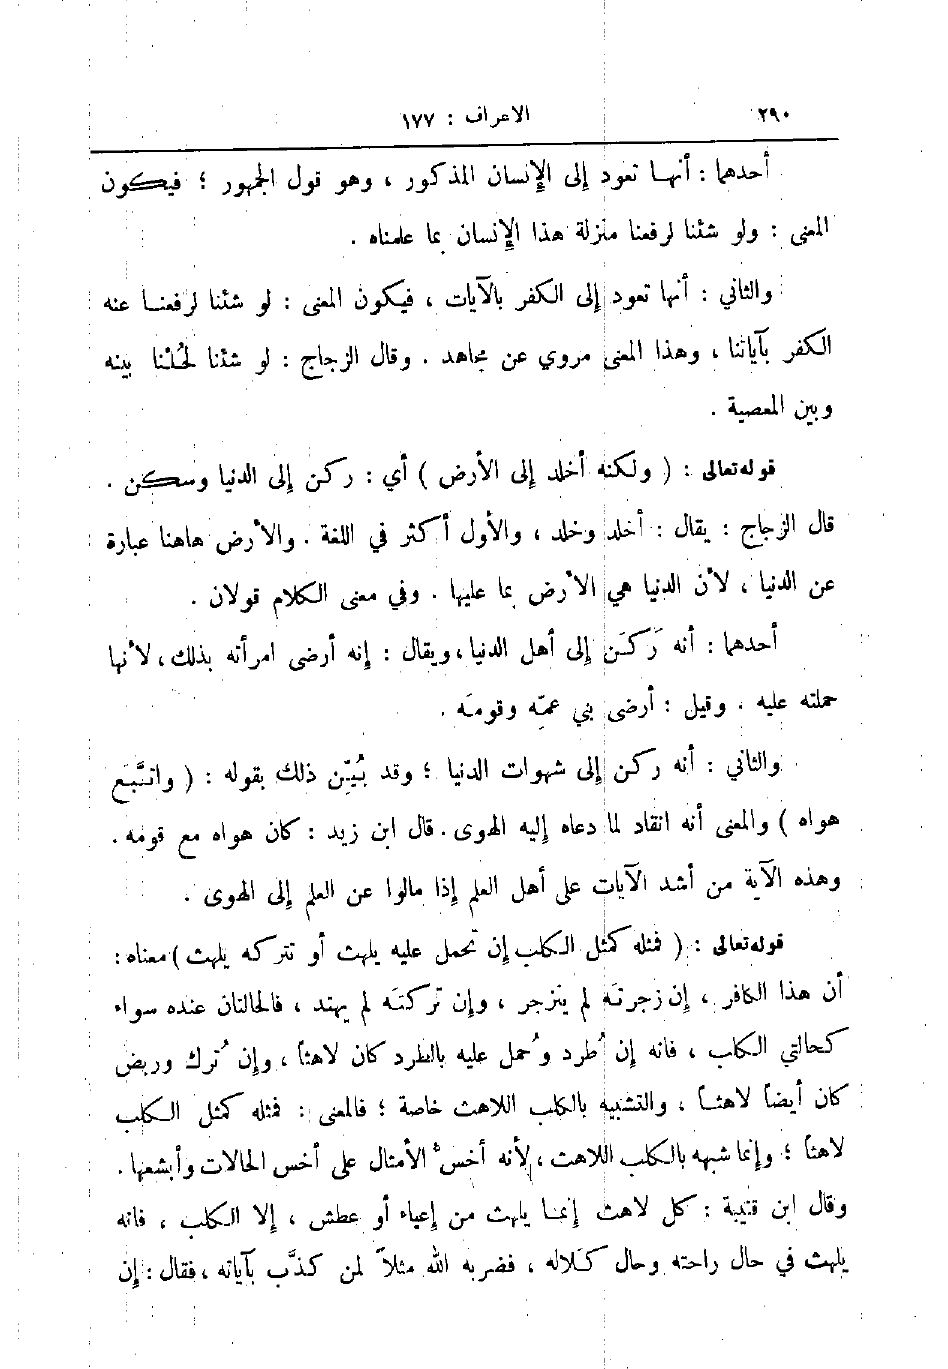 ٢٩٠ الاعراف : ١٧٧
أحدهما : أنهـا تعود إلى الإنسان المذكور ، وهو قول الجمهور ؛ فيكون
المعنى : ولو شئنا لرفعنا منزلة هذا الإنسان بما علمناه .
والثاني : أنها تعود إلى الكفر بالآيات ، فيكون المعنى : لو شئنا لرفعنـا عنه
الكفر بآياتنا ، وهذا المعنى مروي عن مجاهد . وقال الزجاج : لو شئنا لحُلْنا بينه
وبين المعصية .
قوله تعالى : ( ولكنه أخلد إلى الأرض ) أي : ركن إلى الدنيا وسكن .
قال الزجاج : يقال : أخلد وخلد ، والأول أكثر في اللغة . والأرض هاهنا عبارة
عن الدنيا ، لأن الدنيا هي الأرض بما عليها . وفي معنى الكلام قولان .
أحدهما : أنه رَكَن إلى أهل الدنيا ، ويقال : إنه أرضى امرأته بذلك ، لأنها
حملته عليه . وقيل : أرضى بني عمّه وقومَه .
والثاني : أنه ركن إلى شهوات الدنيا ؛ وقد بُيِّن ذلك بقوله : ( واتَّبَع
هواه ) والمعنى أنه انقاد لما دعاه إليه الهوى . قال ابن زيد : كان هواه مع قومه .
وهذه الآية من أشد الآيات على أهل العلم إذا مالوا عن العلم إلى الهوى .
قوله تعالى : ( فمثله كمثل الكلب إن تحمل عليه يلهث أو تتركه يلهث ) معناه :
أن هذا الكافر ، إن زجرتَه لم ينزجر ، وإن تركتَه لم يهتد ، فالحالتان عنده سواء
كحالتي الكلب ، فانه إن طُرد وحُمل عليه بالطرد كان لاهثاً ، وإن تُرك وربض
كان أيضاً لاهثـاً ، والتشبيه بالكلب اللاهث خاصة ؛ فالمعنى : فمثله كمثل الكلب
لاهثاً ؛ وإنما شبهه بالكلب اللاهث ، لأنه أخسُّ الأمثال على أخس الحالات وأبشعها .
وقال ابن قتيبة : كل لاهث إنمـا يلهث من إعياء أو عطش ، إلا الكلب ، فانه
يلهث في حال راحته وحال كَلاله ، فضربه الله مثلاً لمن كذَّب بآياته ، فقال : إن